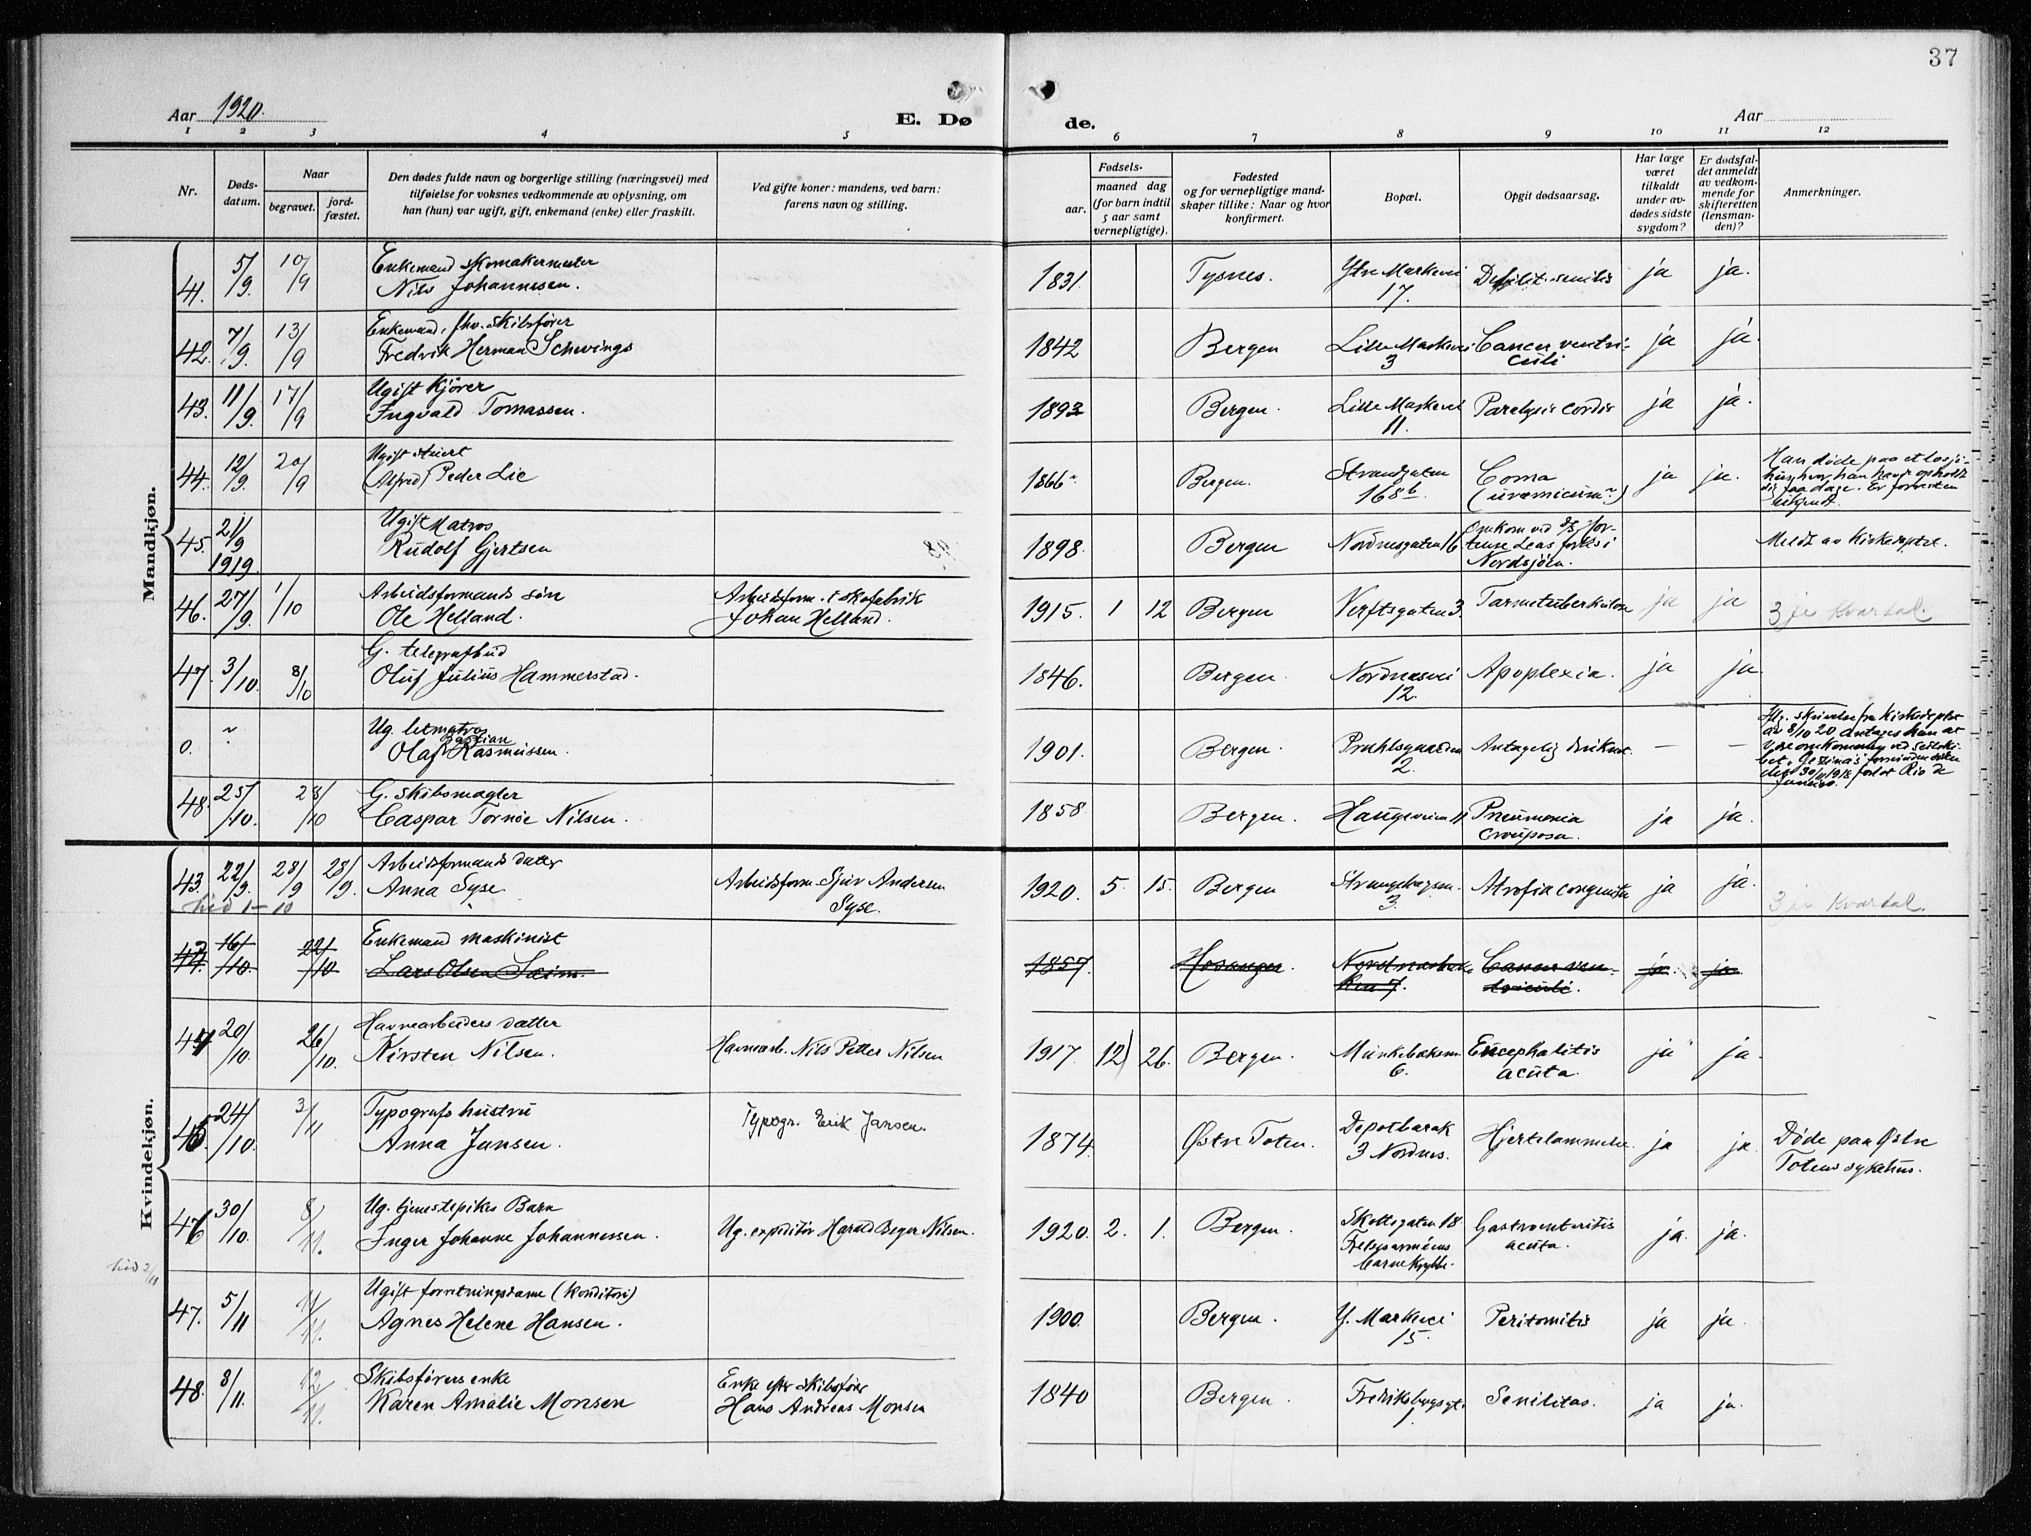 37
Aar 1920.
E. Dø
de.
Aar
1 2 3 4 5 6 7 8 9 10 11 12
Nr.
Døds-
datum.
Naar
begravet.
jord-
fæstet.
Den dødes fulde navn og borgerlige stilling (næringsvei) med
tilføielse for voksnes vedkommende av oplysning, om
han (hun) var ugift, gift, enkemand (enke) eller fraskilt.
Ved gifte koner: mandens, ved barn:
farens navn og stilling.
Fødsels-
aar.
maaned dag
(for barn indtil
5 aar samt
vernepligtige).
Fødested
og for vernepligtige mand-
skaper tillike: Naar og hvor
konfirmert.
Bopæl.
Opgit dødsaarsag.
Har læge
været
tilkaldt
under av-
dødes sidste
sygdom?
Er dødsfal-
det anmeldt
av vedkom-
mende for
skifteretten
(lensman-
den)?
Anmerkninger.
Mandkjøn.
41. 5/9. 10/9 Enkemand skomakermester
Nils Johannesen. 1831. Tysnes. Ytre Markevei
17. senilis ja ja.
42. 7/9. 13/9 Enkemand, fhv. skibsfører
Fredrik Herman Schwings 1842 Bergen Lille Markevei
3 Cancer ventri-
culi ja ja.
43. 11/9. 17/9 Ugift Kjører
Ingvald Tomassen. 1893 Bergen. Lille Markevei
11. Paralysis cordis ja ja.
44. 12/9. 20/9 Ugift stuert
(Alfred) Peder Lie 1866 Bergen. Strandgaten
168b Coma
(uræmicum) ja ja. Han døde paa et losji-
hus, hvor han havde opholdt
sig faa dage. Er forresten
ukjendt.
45. 21/9
1919 Ugift Matros
Rudolf Gjertsen 1898. Bergen Nordnesgaten 16 Omkom ved for-
Leas forlis i
Nordsjøen. Meldt av Kirkedeptet.
46. 27/9. 1/10 Arbeidsformands søn
Ole Helland. Arbeidsform. i skofabrik
Johan Helland. 1915. 1 12 Bergen Verftsgaten 3. Tarmtuberkulose ja ja 3je Kvartal.
47. 3/10. 8/10 G. telegrafbud
Oluf Julius Hammerstad. 1846. Bergen. Nordnesvei
12. Apoplexia. ja ja
0. ~ Ug. letmatros
Bastian
Olaf Rasmussen. 1901. Bergen. Prahlsgaarden
2. Antagelig druknet — — Ifg. skrivelse fra Kirkedeptet
av 8/10 20 antages han at
være omkommet ved seilski-
bet „Gezina's" forsvinden siden
den 30/11 1918 forlot Rio de
Janeiro.
48. 25/10. 28/10 G. skibsmægler
Caspar Tornøe Nilsen. 1858. Bergen. Haugeveien 11 Pneumonia
crouposa. ja ja.
Kvindekjøn.
43. 22/9. 28/9 28/9. Arbeidsformands datter
Anna Syse. Arbeidsform. Sjur Andersen
Syse. 1920. 5. 15. Bergen Strangebakken.
3. Atrofia congenita ja ja. 3je Kvartal.
hid 1-10
44. 16/10. 22/10 Enkemand maskinist
Lars Olsen Sæim. 1857. Hosanger. Nordnesbak-
ken 7. Cancer ven-
triculi. ja ja
44 20/10. 26/10. Havnearbeiders datter
Kirsten Nilsen. Havnearb. Nils Petter Nilsen 1917. 12) 26. Bergen. Munkebaksm
6. Encephalitis
acuta. ja ja.
45 24/10. 3/11 Typografs hustru
Anna Jansen. Typogr. Erik Jansen. 1874. Østre Toten. Depotbarak
3 Nordnes. Hjertelammelse ja ja. Døde paa Østre
Totens sykehus.
46 30/10. 8/11. Ug. tjenestepikes Barn
Inger Johanne Johannessen. Ug. expeditør Harald Beyer Nilsen. 1920. 2. 1. Bergen. Skottegaten 18
Frelsesarméens
barnekrybbe. Gastroenteritis
acuta. ja. ja.
hid 2/11
47. 5/11 11/11. Ugift forretningsdame (Konditori)
Agnes Helene Hansen. 1900. Bergen. Y. Markevei
15. Peritonitis ja ja.
48. 8/11. 12/11. Skibsførers enke
Karen Amalie Monsen Enke efter skibsfører
Hans Andreas Monsen 1840 Bergen. Fredriksbergsgt.
1. Senilitas. ja ja.